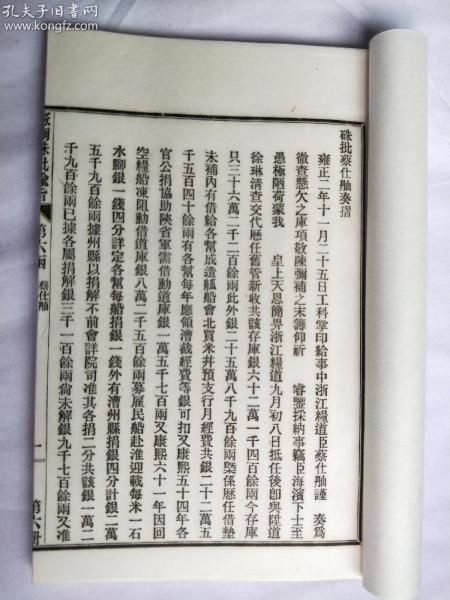 孔夫子旧书网
www.kongfz.com
硃批蔡仕舢奏摺
雍正二年十一月二十五日工科掌印給事中浙江糧道臣蔡仕舢謹 奏爲
徹查懸欠之庫項敬陳彌補之末籌仰祈 睿鑒採納事竊臣海濱下士至
愚極陋荷蒙我 皇上天恩簡畀浙江糧道九月初八日抵任後卽與陞道
徐琳清查交代歷任舊管新收共該存庫銀六十二萬一千四百餘兩今存庫
只三十六萬二千二百餘兩此外銀二十五萬八千九百餘兩槩係歷任借墊
未補內有借給各幫成造艍船會北買米井預支行月經費共銀二十二萬五
千五百四十餘兩有各幫每年應領漕截經費等銀可扣又康熙五十四年各
官公捐協助陝省軍需借動道庫銀一萬五千七百兩又康熙六十一年因回
空糧船凍阻動借道庫銀八萬二千五百餘兩募雇民船赴淮迎載每米一石
水腳銀一錢四分詳定各幫每船捐銀一錢外有漕州縣捐銀四分計銀二萬
五千九百餘兩據州縣以捐解不前會詳院司准其各捐二分共該銀一萬二
千九百餘兩已據各屬捐解銀三千一百餘兩尙未解銀九千七百餘兩又准
硃批諭旨
第六函
蔡仕舢
一
第六册